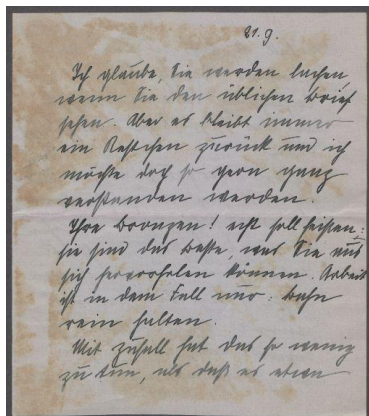 21. 9.
Ich glaube, Sie werden lachen
wenn Sie den üblichen Brief
sehen. Aber es bleibt immer
ein Restchen zurück und ich
möchte doch so gern ganz
verstanden werden.
Ihre Bronzen! soll heißen:
sie sind das Beste, was Sie aus
sich herausholen können. Arbeit
ist in dem Fall nur: Bahn
rein halten.
Mit Zufall hat das so wenig
zu tun, als daß es etwa